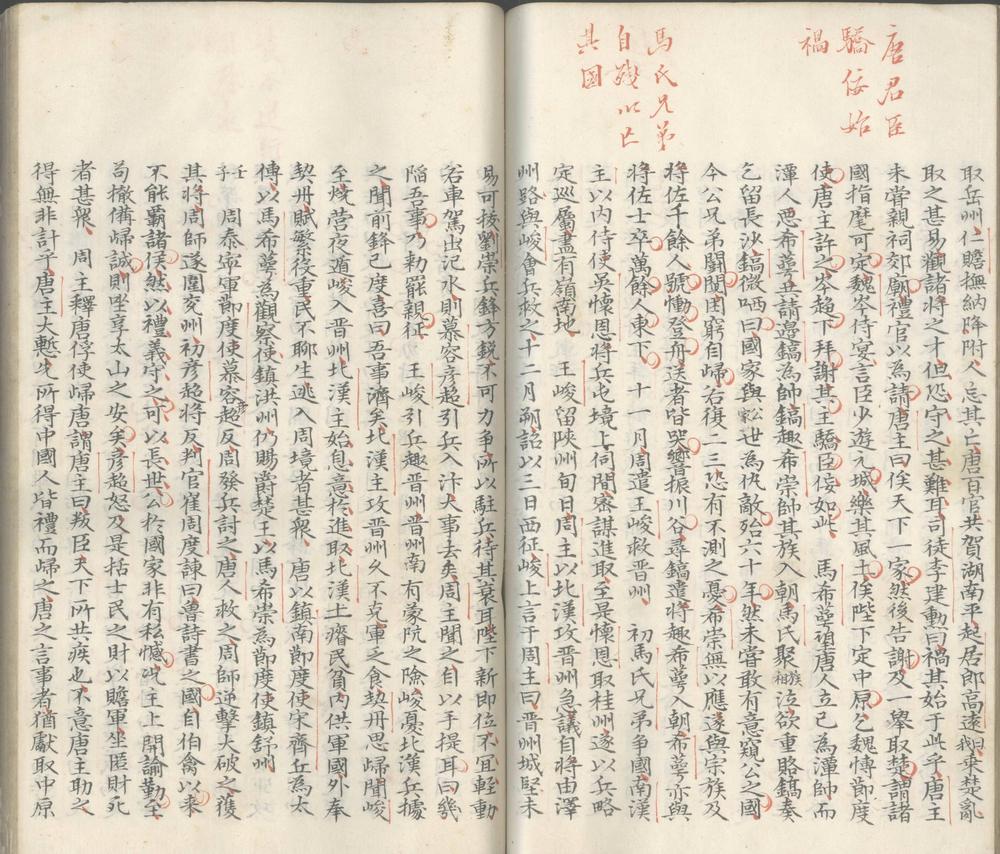 唐君臣
驕佞始
禍
馬氏兄弟
自殘以亡
其國
取岳州、仁贍撫納降附、人忘其亡、唐百官共賀湖南平、起居郎高遠曰、我乘楚亂
取之甚易、觀諸將之才、但恐守之甚難耳、司徒李建勳曰、禍其始于此乎、唐主
未嘗親祠郊廟、禮官以為請、唐主曰、俟天下一家、然後告謝、及一舉取楚、謂諸
國指麾可定、魏岑侍宴言、臣少遊元城、樂其風土、俟陛下定中原、乞魏博節度
使、唐主許之、岑趨下拜謝、其主驕臣佞如此、 馬希萼望唐人立己為潭帥、而
潭人惡希萼、共請邊鎬為帥、鎬趣希崇帥其族入朝、馬氏聚族相泣、欲重賂鎬奏
乞留長沙、鎬微哂曰、國家與公家世為仇敵、殆六十年、然未嘗敢有意窺公之國、
今公兄弟鬬鬩、困窮自歸、若復二三、恐有不測之憂、希崇無以應、遂與宗族及
將佐千餘人、號慟登舟、送者皆哭、響振川谷、尋鎬遣將趣希萼入朝、希萼亦與
將佐士卒萬餘人東下、 十一月、周遣王峻救晋州、 初馬氏兄弟爭國、南漢
主以内侍使吳懷恩將兵屯境上、伺間密謀進取、至是懷恩取桂州、遂以兵略
定巡屬、盡有嶺南地、 王峻留陝州旬日、周主以北漢攻晋州急、議自將由澤
州路與峻會兵救之、十二月朔、詔以三日西征、峻上言于周主曰、晋州城堅、未
易可拔、劉崇兵鋒方銳、不可力爭、所以駐兵待其衰耳、陛下新即位、不宜輕動、
若車駕出汜水、則慕容彥超引兵入汴、大事去矣、周主聞之、自以手提耳曰、幾
陷吾事、乃勅罷親征、 王峻引兵趣晋州、晋州南有蒙阬之險、峻憂北漢兵據
之、聞前鋒已度、喜曰、吾事濟矣、北漢主攻晋州久不克、軍乏食、契丹思歸、聞峻
至、燒營夜遁、峻入晋州、北漢主始息意於進取、北漢土瘠民貧、内供軍國、外奉
契丹、賦繁役重、民不聊生、逃入周境者甚衆、 唐以鎮南節度使宋齊丘為太
傅、以馬希萼為觀察使、鎮洪州、仍賜爵楚王、以馬希崇為節度使、鎮舒州、
壬子 周泰寧軍節度使慕容彥超反、周發兵討之、唐人救之、周師逆擊大破之、獲
其將、周師遂圍兗州、初彥超將反、判官崔周度諫曰、魯詩書之國、自伯禽以来
不能霸諸侯、然以禮義守之、可以長世、公於國家非有私憾、况主上開諭勤至、
苟撤備歸誠、則坐享太山之安矣、彥超怒、及是括士民之財以贍軍、坐匿財死
者甚衆、 周主釋唐俘使歸唐、謂唐主曰、叛臣天下所共疾也、不意唐主助之、
得無非計乎、唐主大慙、先所得中國人、皆禮而歸之、唐之言事者、猶獻取中原